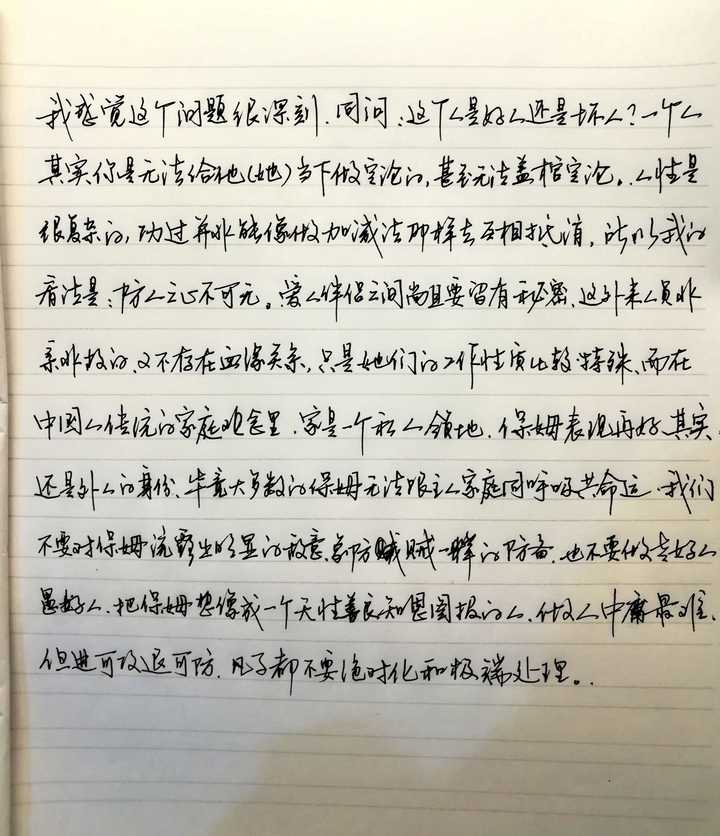 我感觉这个问题很深刻.同问:这个人是好人还是坏人?一个人
其实你是无法给他(她)当下做定论的,甚至无法盖棺定论。人性是
很复杂的,功过并非能像做加减法那样去互相抵消,所以我的
看法是:防人之心不可无。爱人伴侣之间尚且要留有秘密、这外来人员非
亲非故的、又不存在血缘关系,只是她们的工作性质比较特殊、而在
中国人传统的家庭观念里.家是一个私人领地.保姆表现再好、其实
还是外人的身份、毕竟大多数的保姆无法跟主人家庭同呼吸共命运.我们
不要对保姆流露出明显的敌意、防贼一样的防备.也不要做老好人
愚好人.把保姆想像成一个天性善良知恩图报的人.做人中庸最难.
但进可攻退可防.凡事都不要绝对化和极端处理。